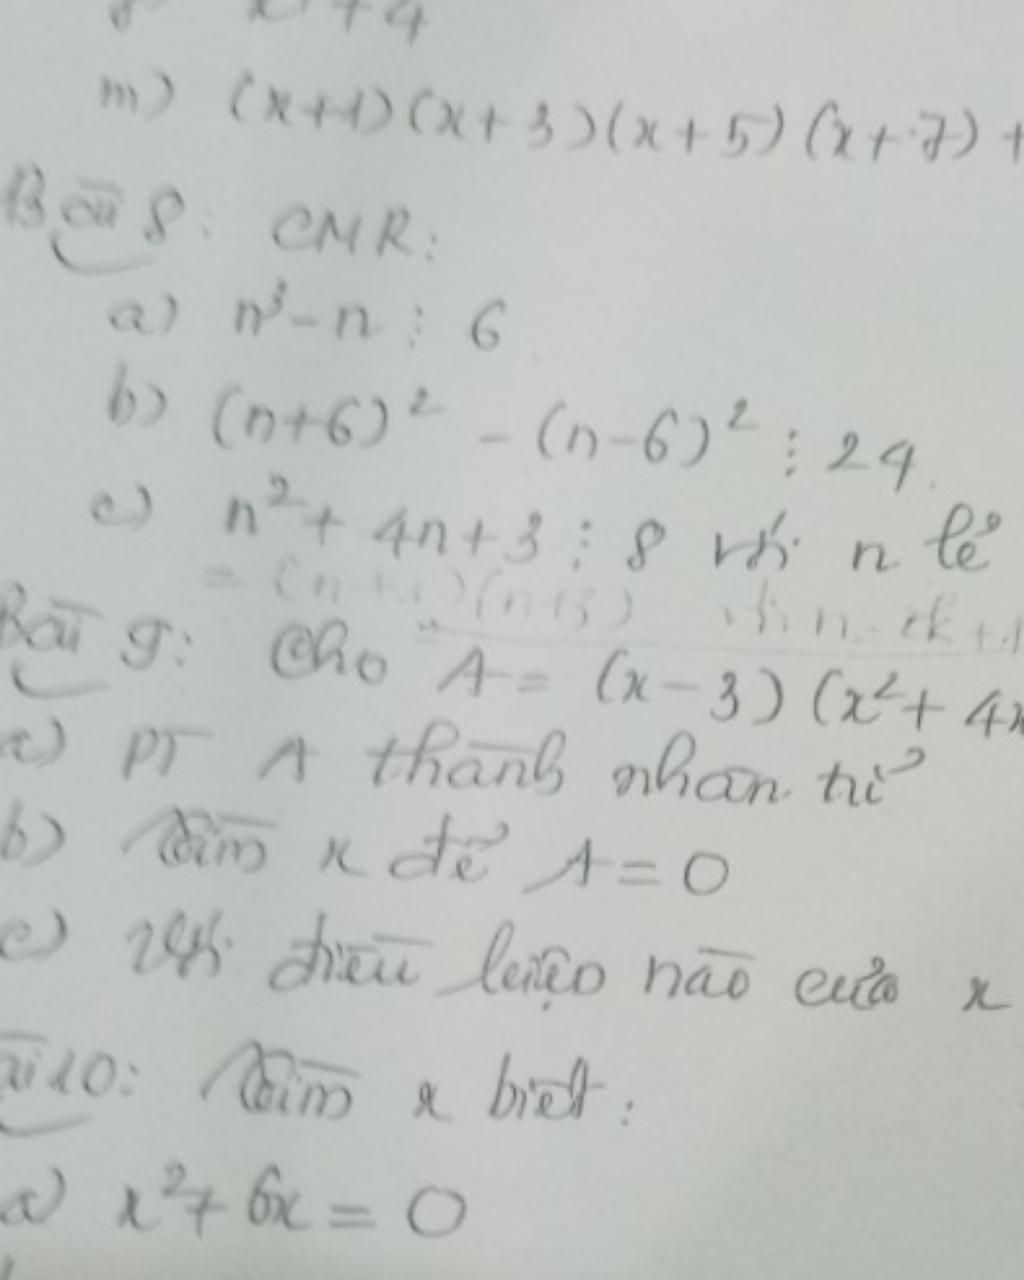 x⁴ + 4
m) (x+1)(x+3)(x+5)(x+7) +
Bài 8: CMR:
a) n³ - n ⋮ 6
b) (n+6)² - (n-6)² ⋮ 24.
c) n² + 4n + 3 ⋮ 8 với n lẻ
= (n+1)(n+3)
Bài 9: Cho A = (x-3)(x² + 4x
a) PT A thành nhân tử
b) Tìm x để A = 0
c) Với điều kiện nào của x
ài 10: Tìm x biết:
a) x² + 6x = 0